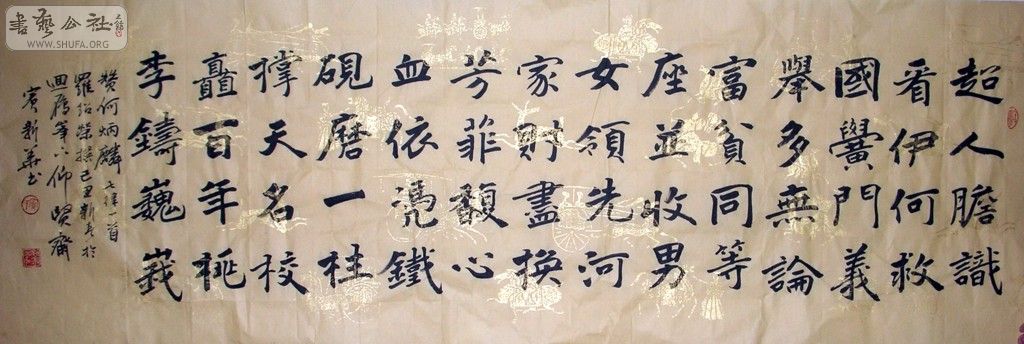 書藝公社
WWW.SHUFA.ORG
超人膽識
看伊何救
國黌門義
舉多無論
富貧同等
座並收男
女領先河
家財盡換
芳菲馥心
血依憑鐵
硯磨一柱
撑天名校
矗百年桃
李鑄巍峩
贊何炳麟七律一首
羅紹榮撰己丑新春於
迴雁峰下仰賢齋
賓新華书